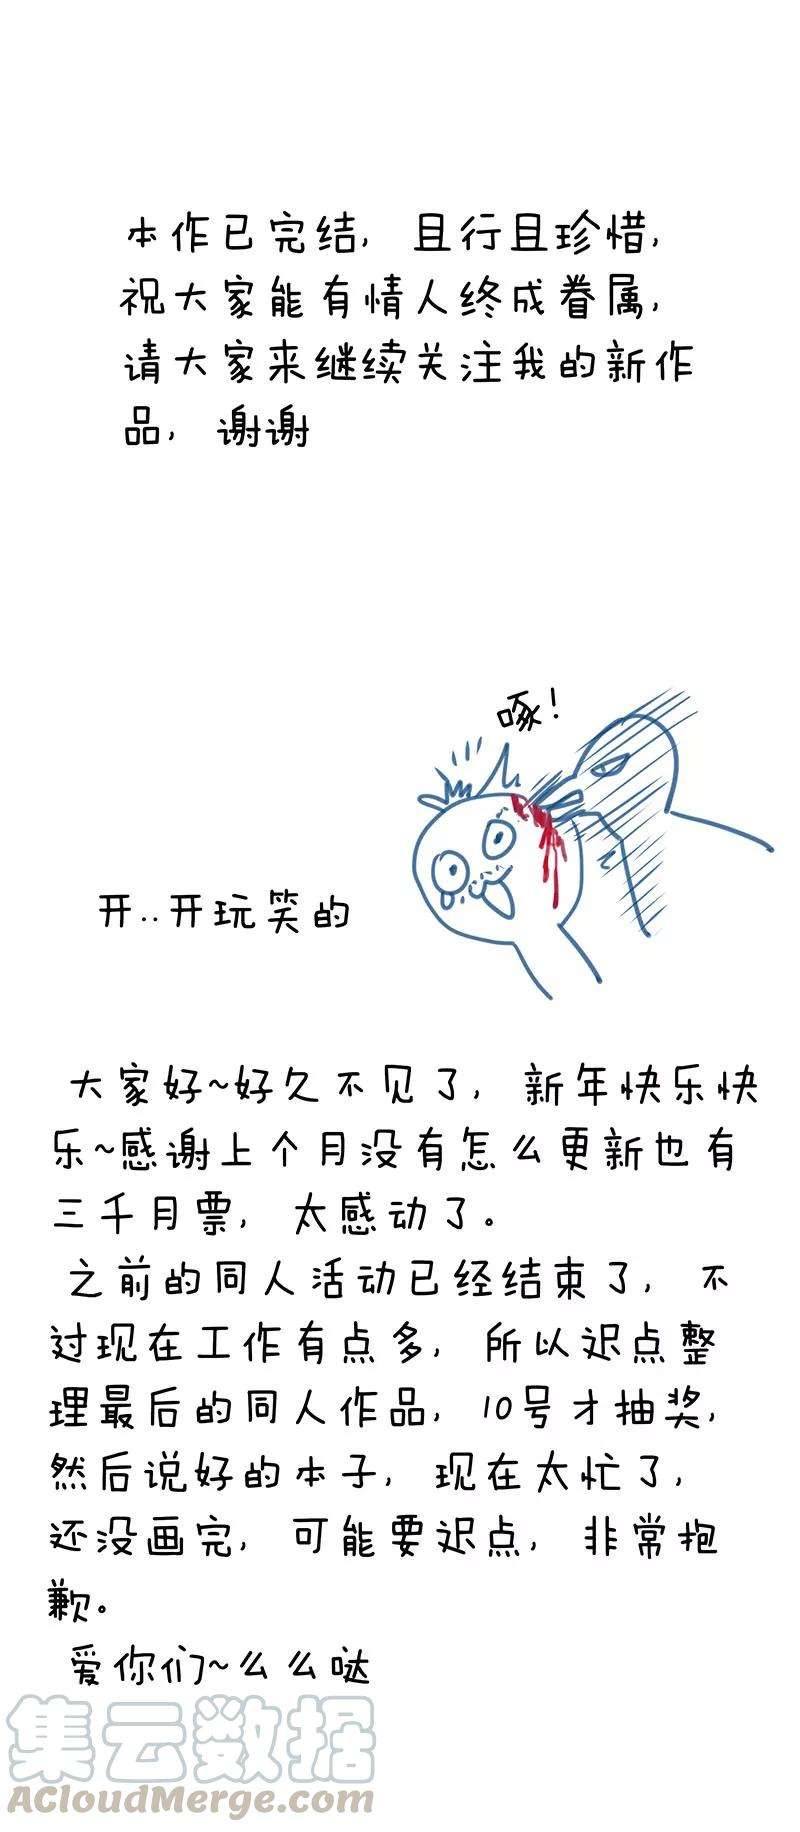 本作已完结，且行且珍惜，
祝大家能有情人终成眷属，
请大家来继续关注我的新作
品，谢谢
啄！
开..开玩笑的
大家好~好久不见了，新年快乐快
乐~感谢上个月没有怎么更新也有
三千月票，太感动了。
之前的同人活动已经结束了，不
过现在工作有点多，所以迟点整
理最后的同人作品，10号才抽奖，
然后说好的本子，现在太忙了，
还没画完，可能要迟点，非常抱
歉。
爱你们~么么哒
集云数据
ACloudMerge.com